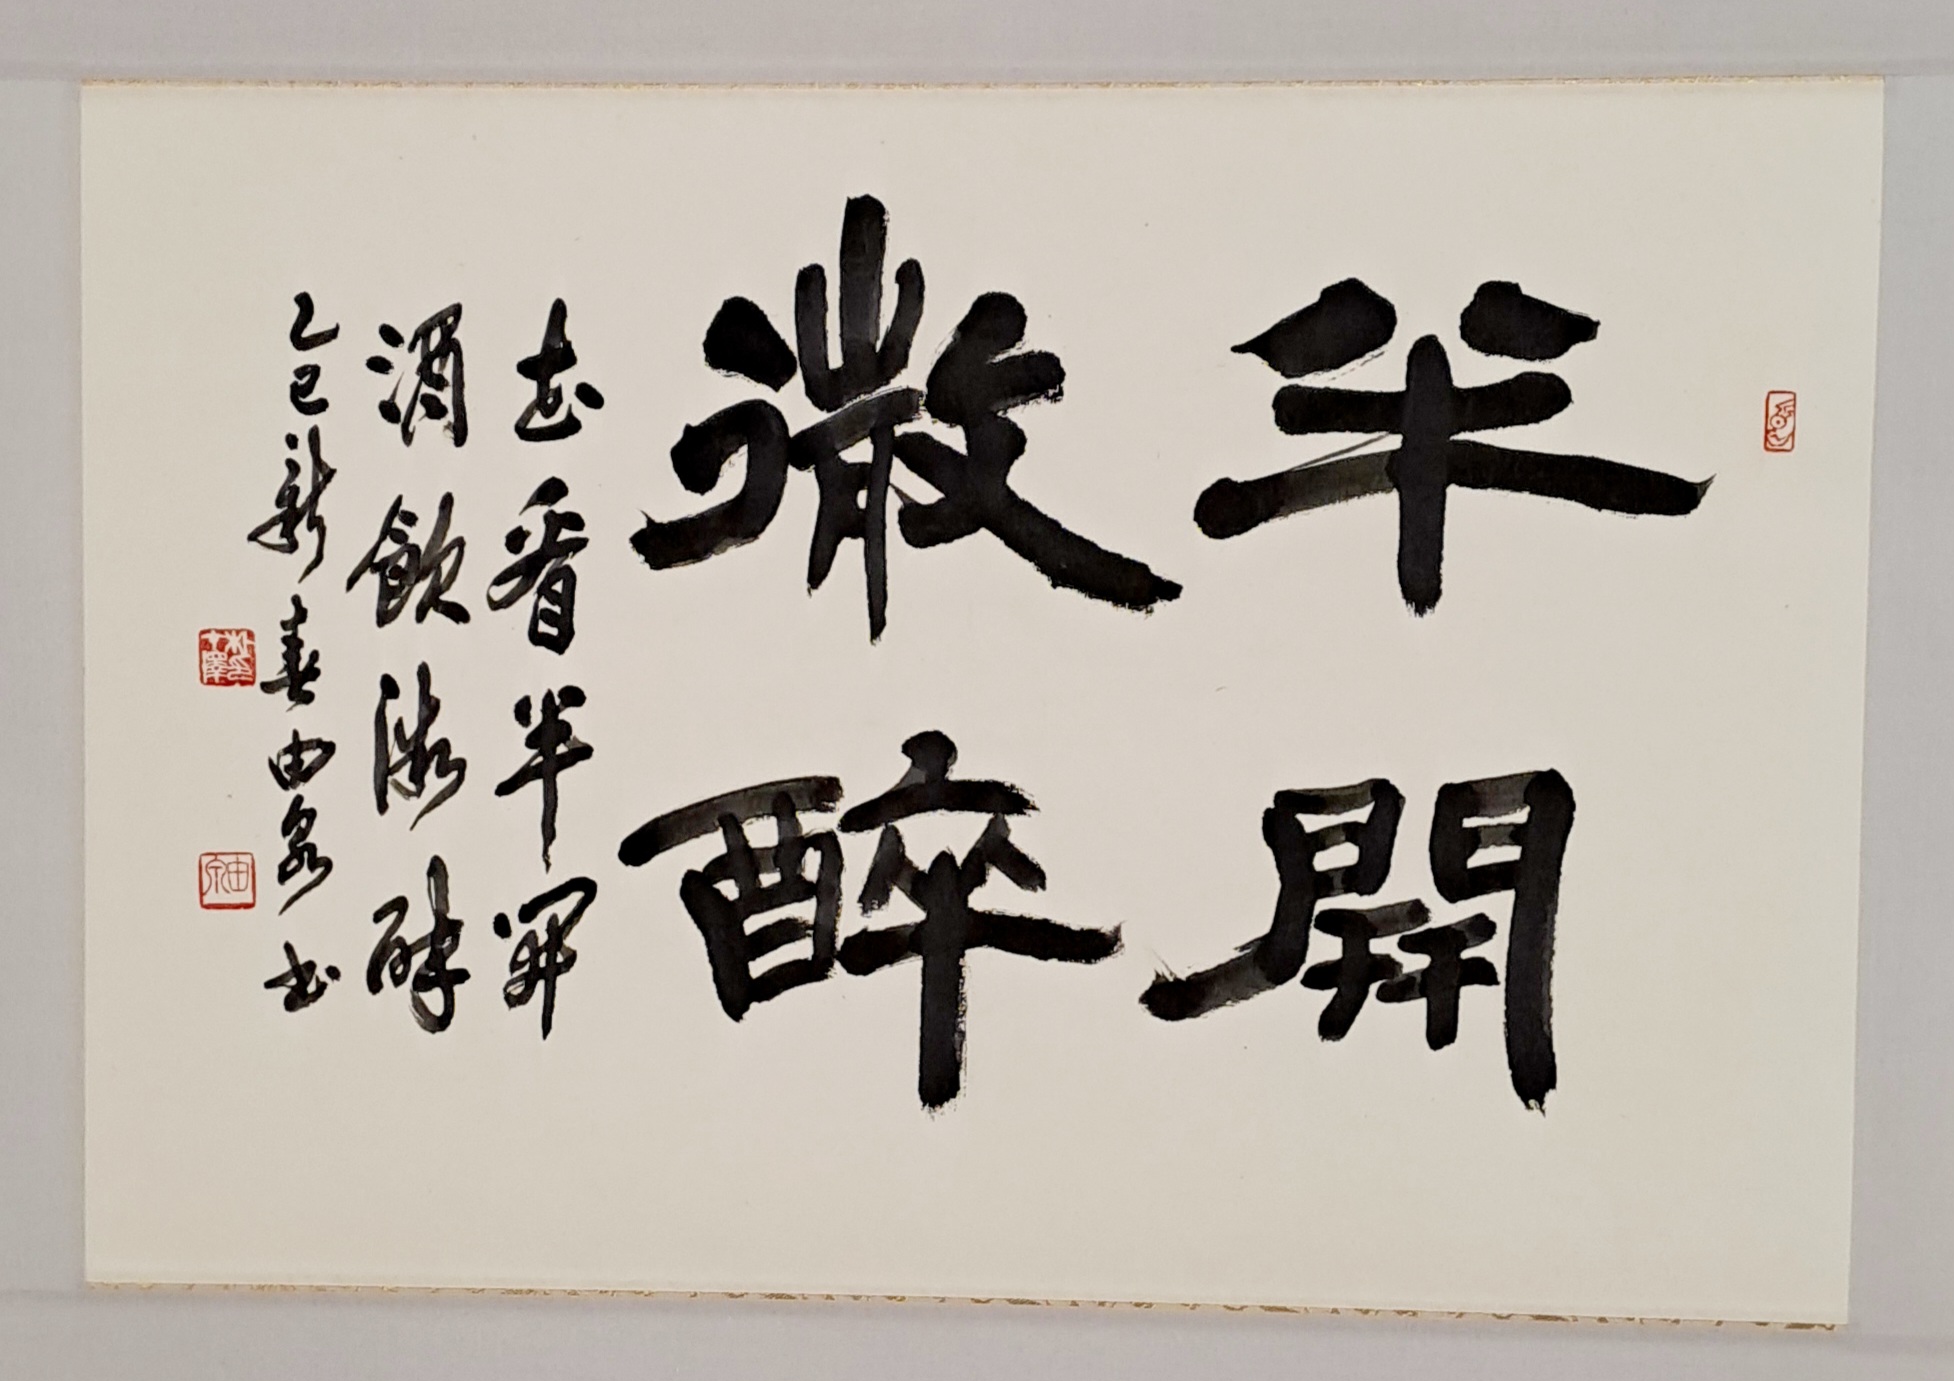 半開
微醉
花看半開
酒飮微醉
乙巳新春由泉書